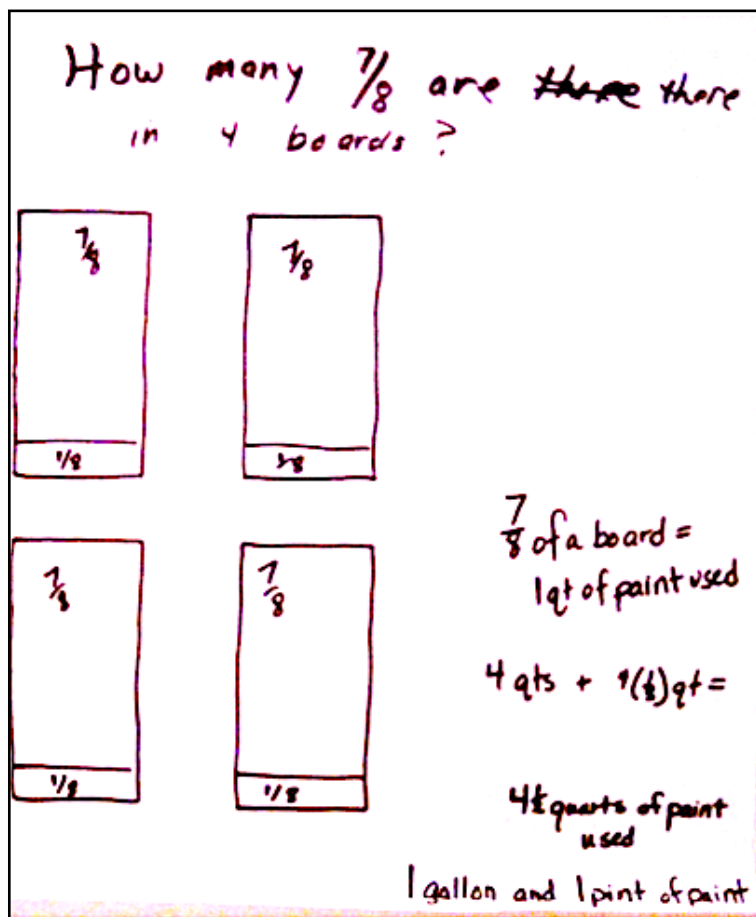 How many 7/8 are there there
in 4 boards?
7/8
7/8
1/8
1/8
7/8
7/8
1/8
1/8
7/8 of a board =
1qt of paint used
4 qts + 4(1/8)qt =
4½ quarts of paint
used
1 gallon and 1 pint of paint